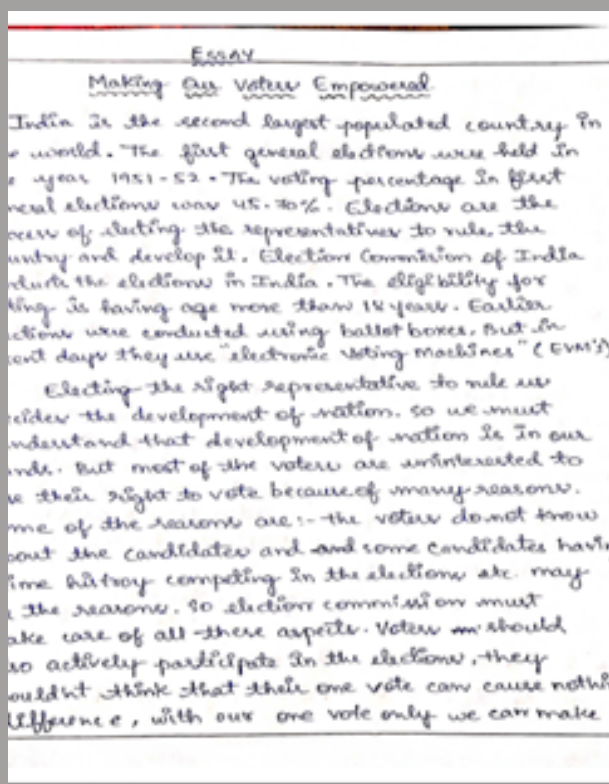 ESSAY
Making Our Voters Empowered
India is the second largest populated country in
world. The first general elections were held in
year 1951-52. The voting percentage in first
neral elections was 45.70%. Elections are the
ocess of electing the representatives to rule the
untry and develop it. Election Commision of India
nducts the elections in India. The eligibility for
ting is having age more than 18 years. Earlier
ections were conducted using ballot boxes. But in
cent days they use "electronic voting machines" (EVM's)
Electing the right representative to rule us
cides the development of nation. So we must
nderstand that development of nation is in our
nds. But most of the voters are uninterested to
se their right to vote because of many reasons.
me of the reasons are:- the voters do not know
bout the candidates and and some candidates havin
ime histroy competing in the elections etc. may
the reasons. So election commission must
ake care of all these aspects. Voters should
so actively participate in the elections, they
ouldnt think that their one vote can cause nothi
ifference, with our one vote only we can make